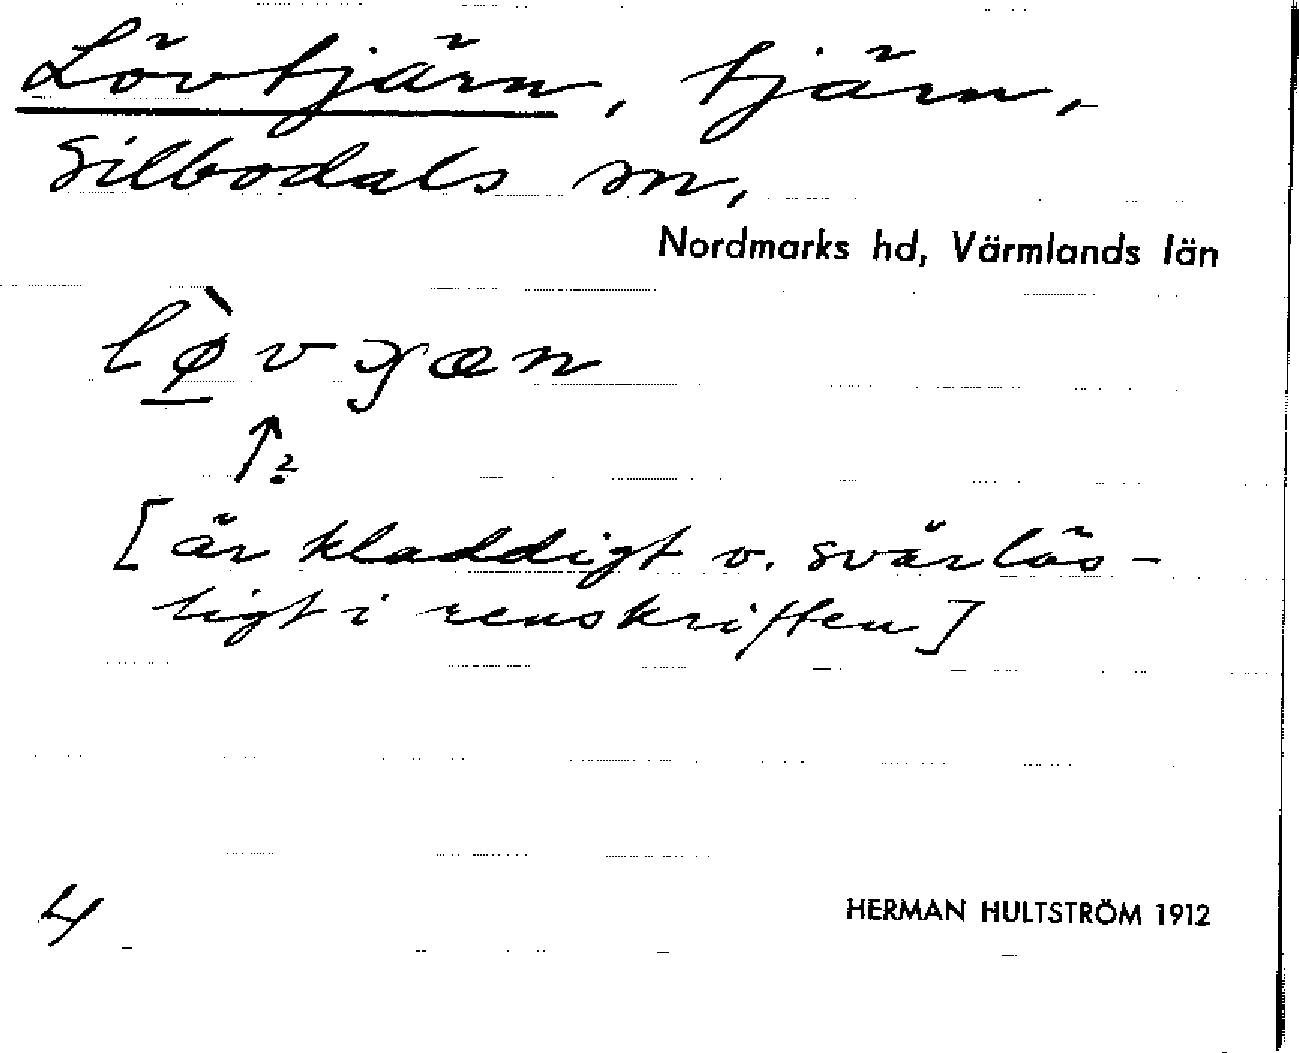 Lövtjärn, tjärn,
Silbodals sn,
Nordmarks hd, Värmlands län
↑?
[är kladdigt o. svårläs-
ligt i renskriften]
4
HERMAN HULTSTRÖM 1912